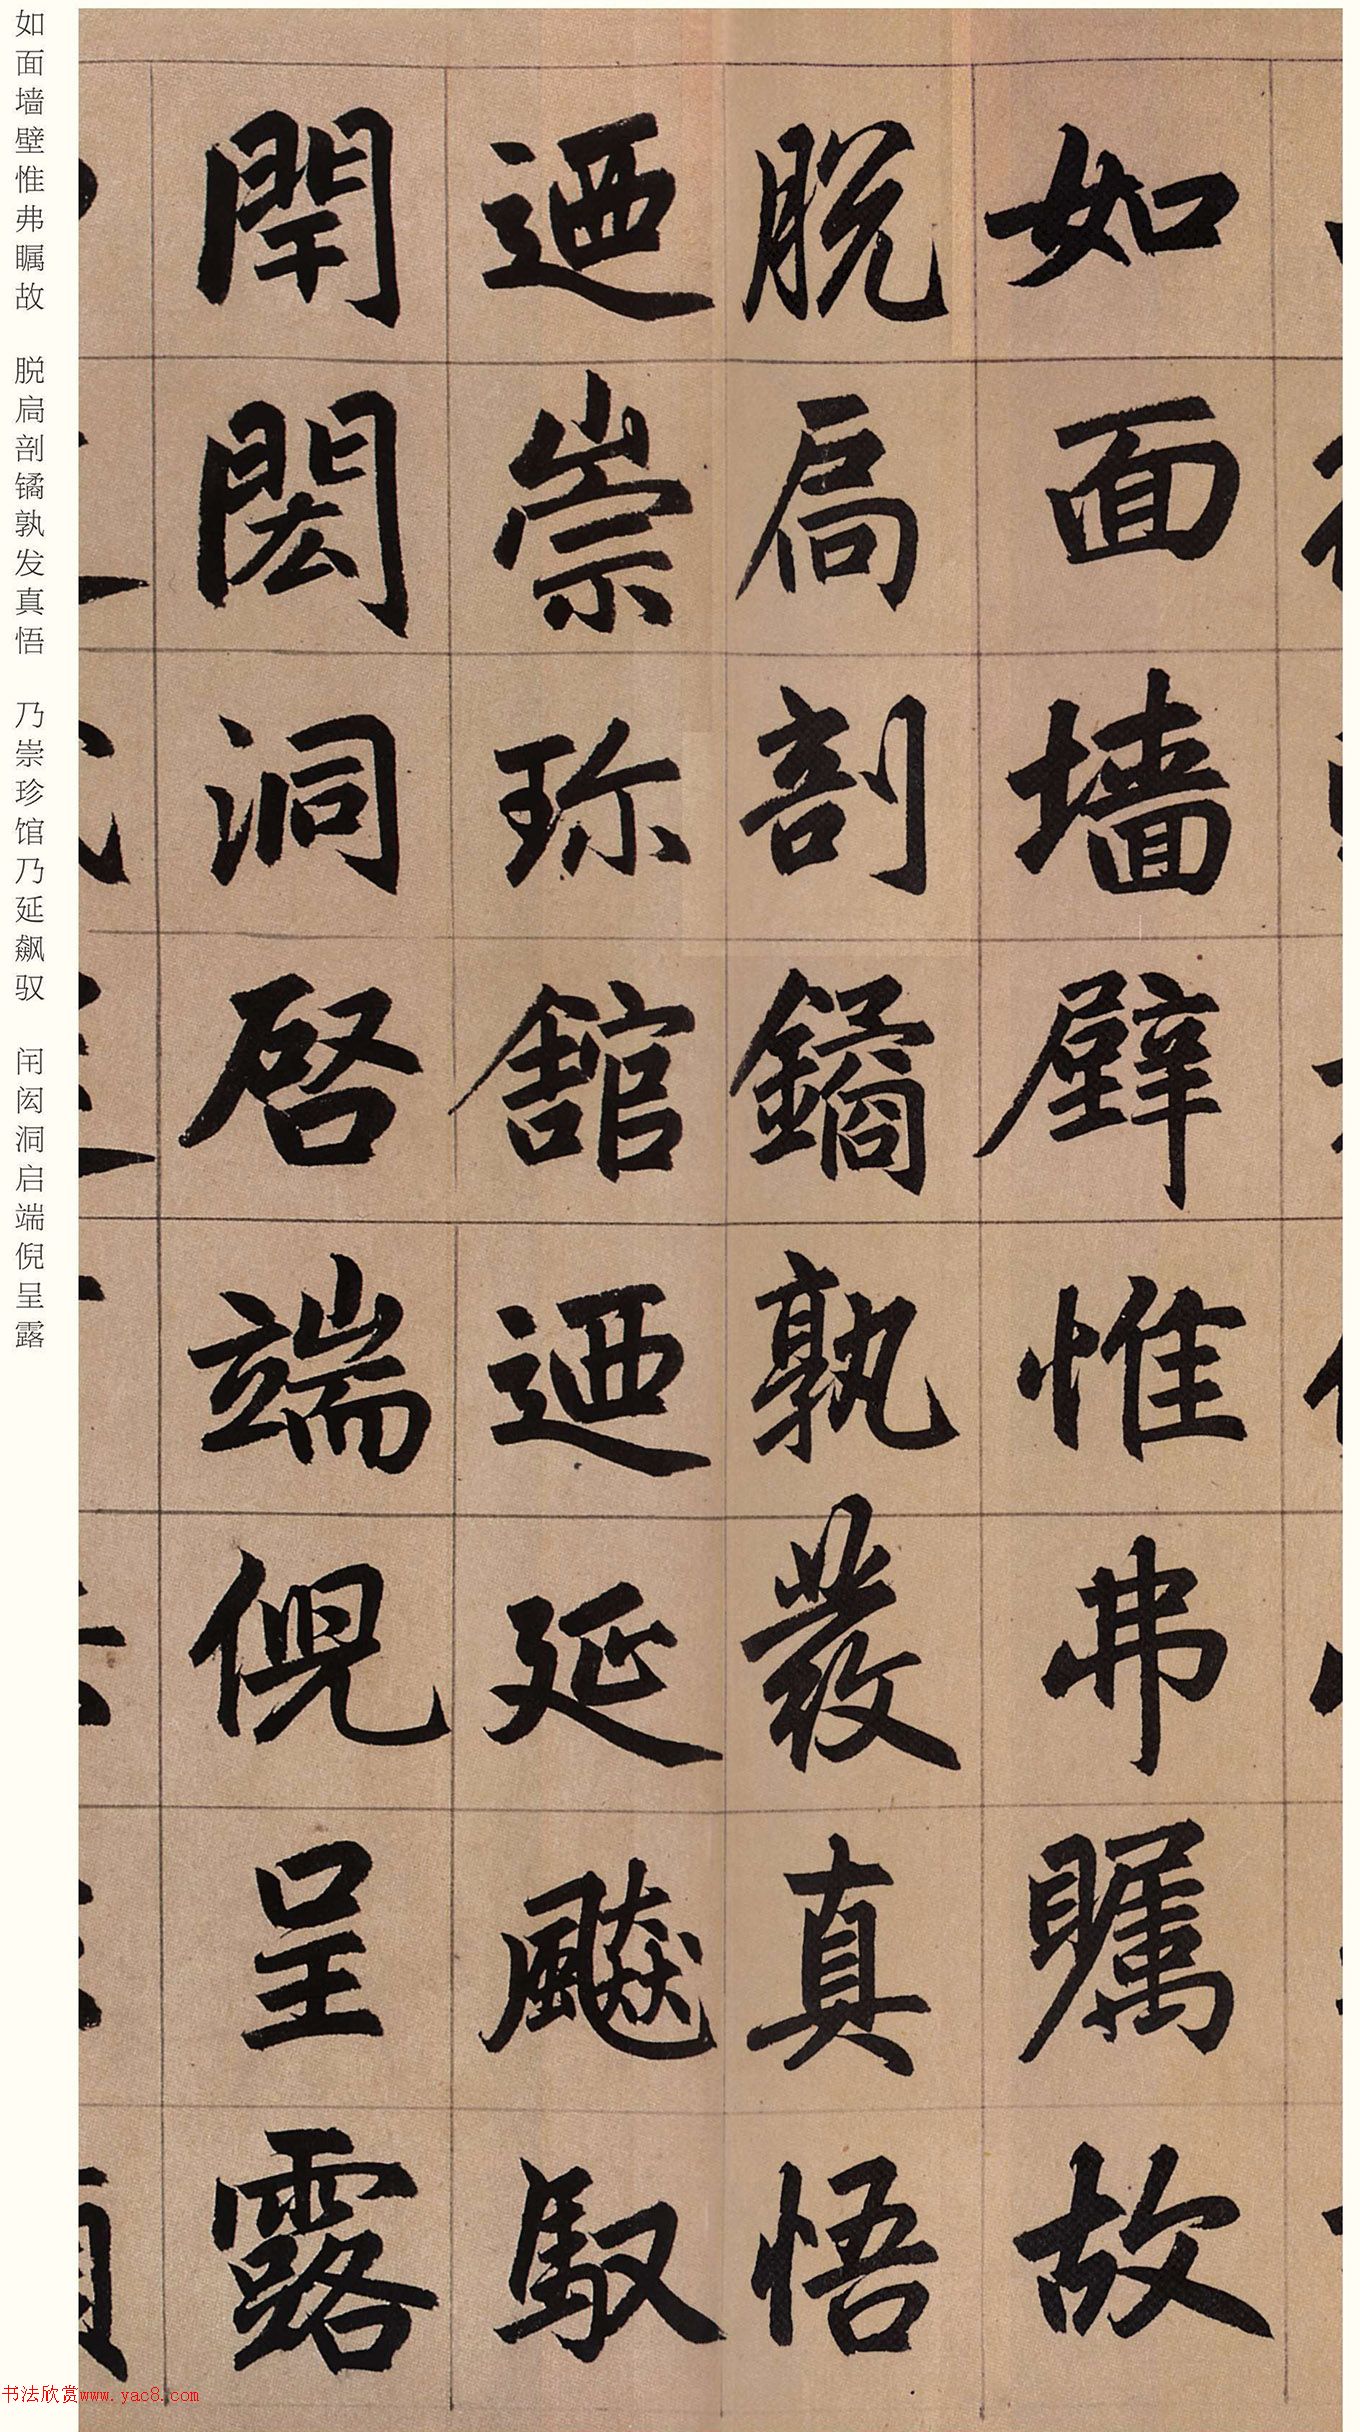 如面墻壁惟弗矚故
脫扃剖鐍孰發真悟
迺崇珎館迺延飇馭
閈閎洞啓端倪呈露
如面墙壁惟弗瞩故 脱扃剖鐍孰发真悟 乃崇珍馆乃延飙驭 闬闳洞启端倪呈露
书法欣赏www.yac8.com